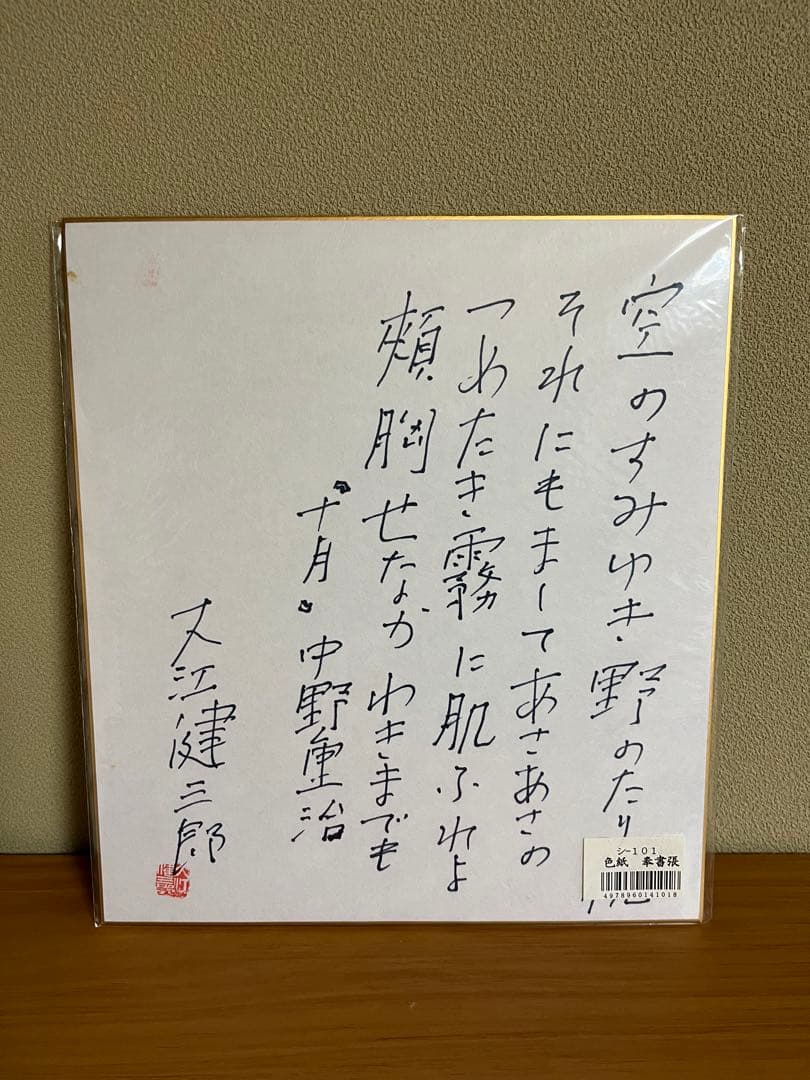 空のすみゆき 野のたり
それにもまして あさあさの
つめたき霧に 肌ふれよ
頬 胸 せなか わきまでも
"十月" 中野重治
大江健三郎
シ-101
色紙 奉書張
4978960141018